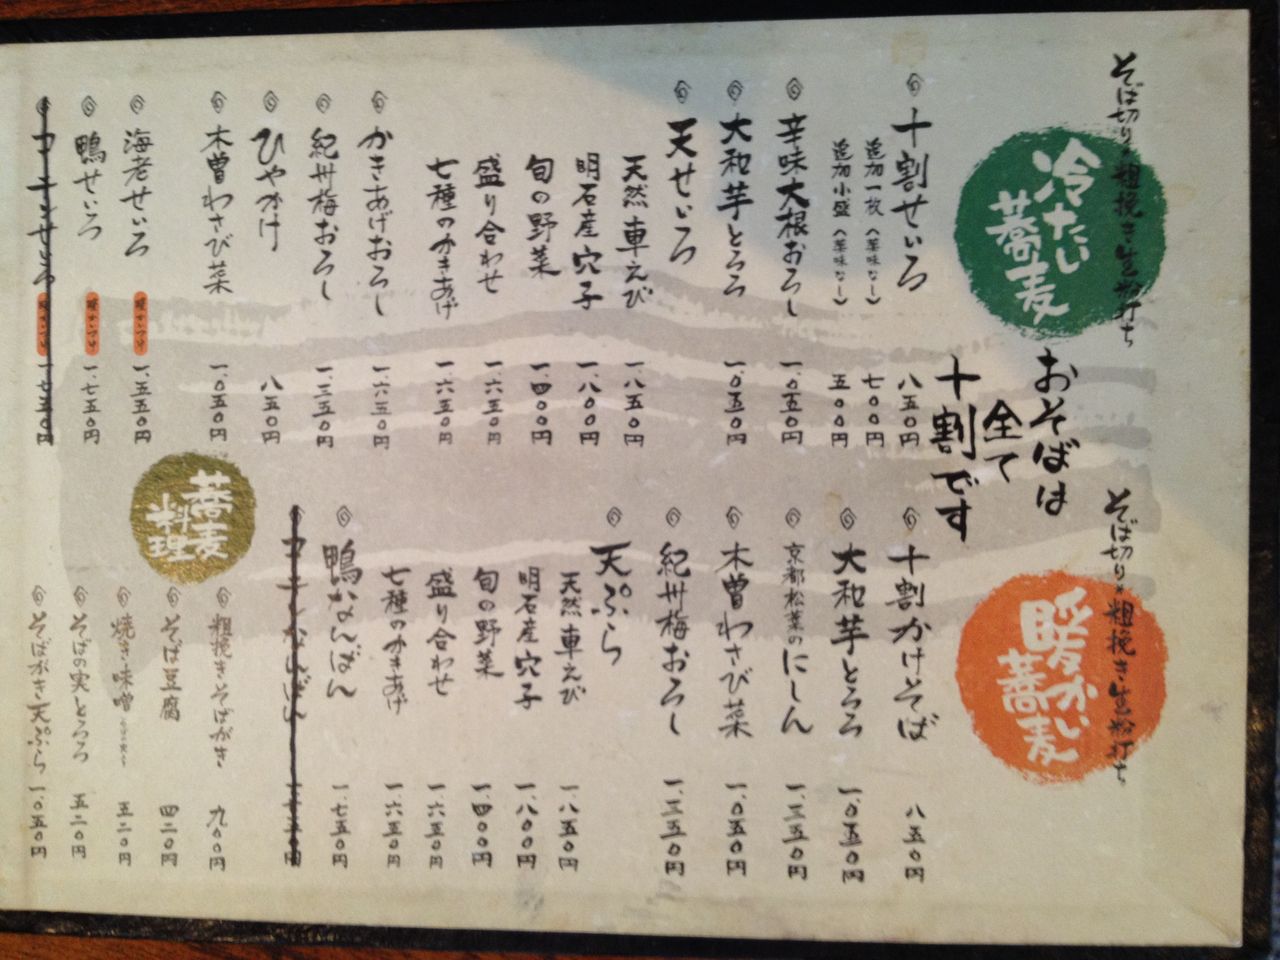 そば切り 粗挽き生粉打ち
冷たい
蕎麦
おそばは
全て
十割です
十割せいろ 八五〇円
追加一枚(薬味なし) 七〇〇円
追加小盛(薬味なし) 五〇〇円
辛味大根おろし 一、〇五〇円
大和芋とろろ 一、〇五〇円
天せいろ
天然車えび 一、八五〇円
明石産穴子 一、八〇〇円
旬の野菜 一、四〇〇円
盛り合わせ 一、六五〇円
七種のかきあげ 一、六五〇円
かきあげおろし 一、六五〇円
紀州梅おろし 一、三五〇円
ひやかけ 八五〇円
木曽わさび菜 一、〇五〇円
海老せいろ 暖かいつけ汁 一、五五〇円
鴨せいろ 暖かいつけ汁 一、七五〇円
一、七五〇円
そば切り 粗挽き生粉打ち
暖かい
蕎麦
十割かけそば 八五〇円
大和芋とろろ 一、〇五〇円
京都松葉のにしん 一、三五〇円
木曽わさび菜 一、〇五〇円
紀州梅おろし 一、三五〇円
天ぷら
天然車えび 一、八五〇円
明石産穴子 一、八〇〇円
旬の野菜 一、四〇〇円
盛り合わせ 一、六五〇円
七種のかきあげ 一、六五〇円
鴨なんばん 一、七五〇円
蕎麦
料理
粗挽きそばがき 九〇〇円
そば豆腐 四二〇円
焼き味噌 五二〇円
そばの実とろろ 五二〇円
そばがき天ぷら 一、〇五〇円